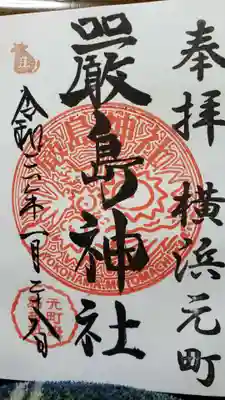 奉拝 横浜元町
嚴島神社
令和三年一月二十八日
YOKOHAMA MOTOMACHI